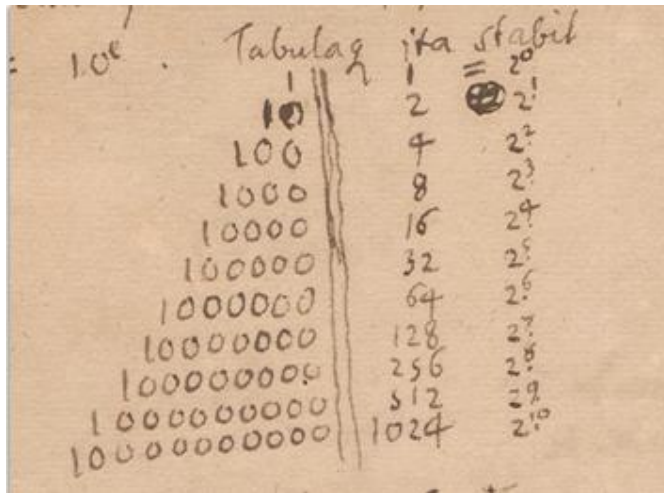 = 10e. Tabulaq ita stabit
1 1 = 2^0
10 2 2^1
100 4 2^2
1000 8 2^3
10000 16 2^4
100000 32 2^5
1000000 64 2^6
10000000 128 2^7
100000000 256 2^8
1000000000 512 2^9
10000000000 1024 2^10